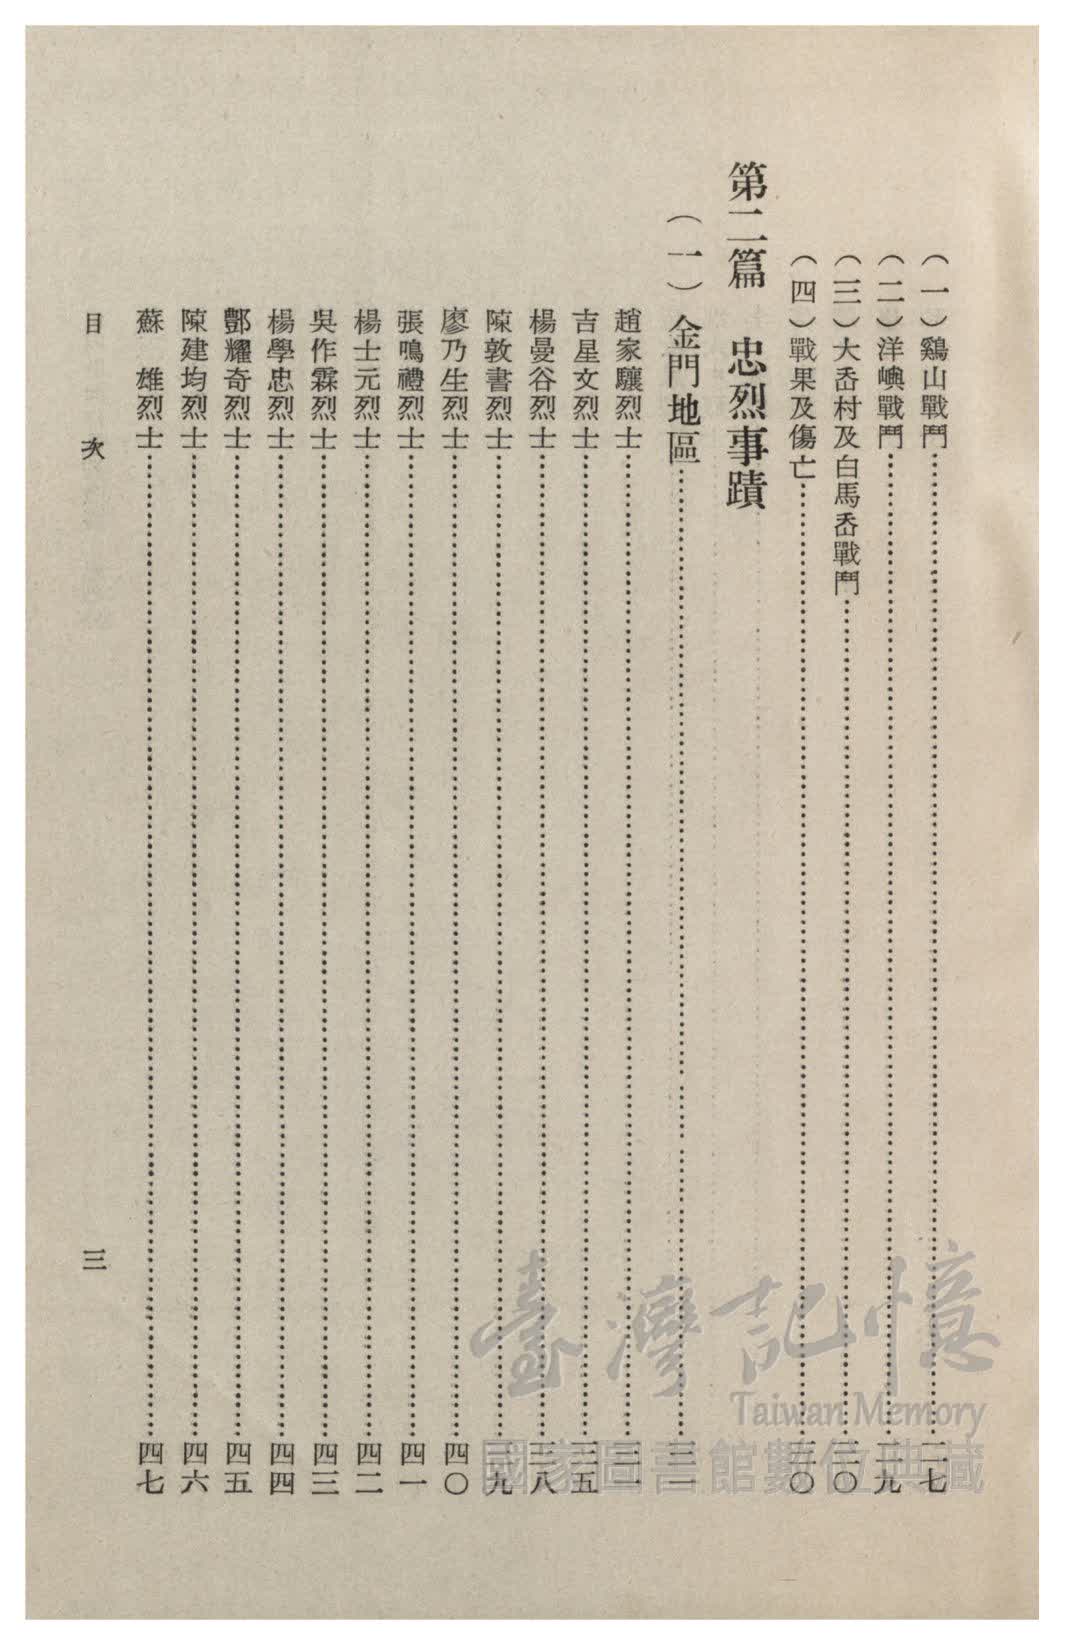 （一）鷄山戰鬥……二七
（二）洋嶼戰鬥……二九
（三）大岙村及白馬岙戰鬥……三〇
（四）戰果及傷亡……三〇
第二篇　忠烈事蹟
（一）金門地區……
趙家驤烈士……
吉星文烈士……三五
楊曼谷烈士……三八
陳敦書烈士……三九
廖乃生烈士……四〇
張鳴禮烈士……四一
楊士元烈士……四二
吳作霖烈士……四三
楊學忠烈士……四四
鄷耀奇烈士……四五
陳建均烈士……四六
蘇　雄烈士……四七
目　次
三
臺灣記憶
Taiwan Memory
國家圖書館數位典藏